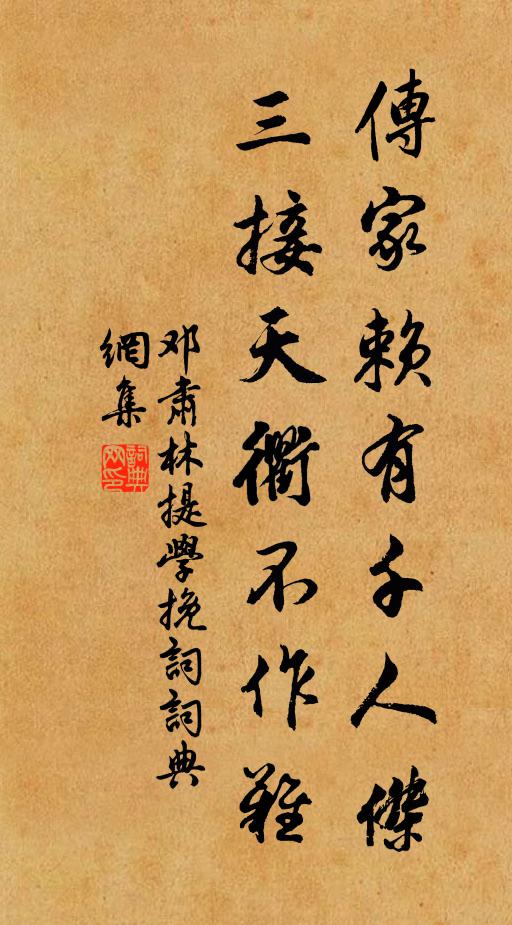 傳家賴有千人傑
三接天衢不作難
邓肅林提學挽詞詞典
網集
詞典網印